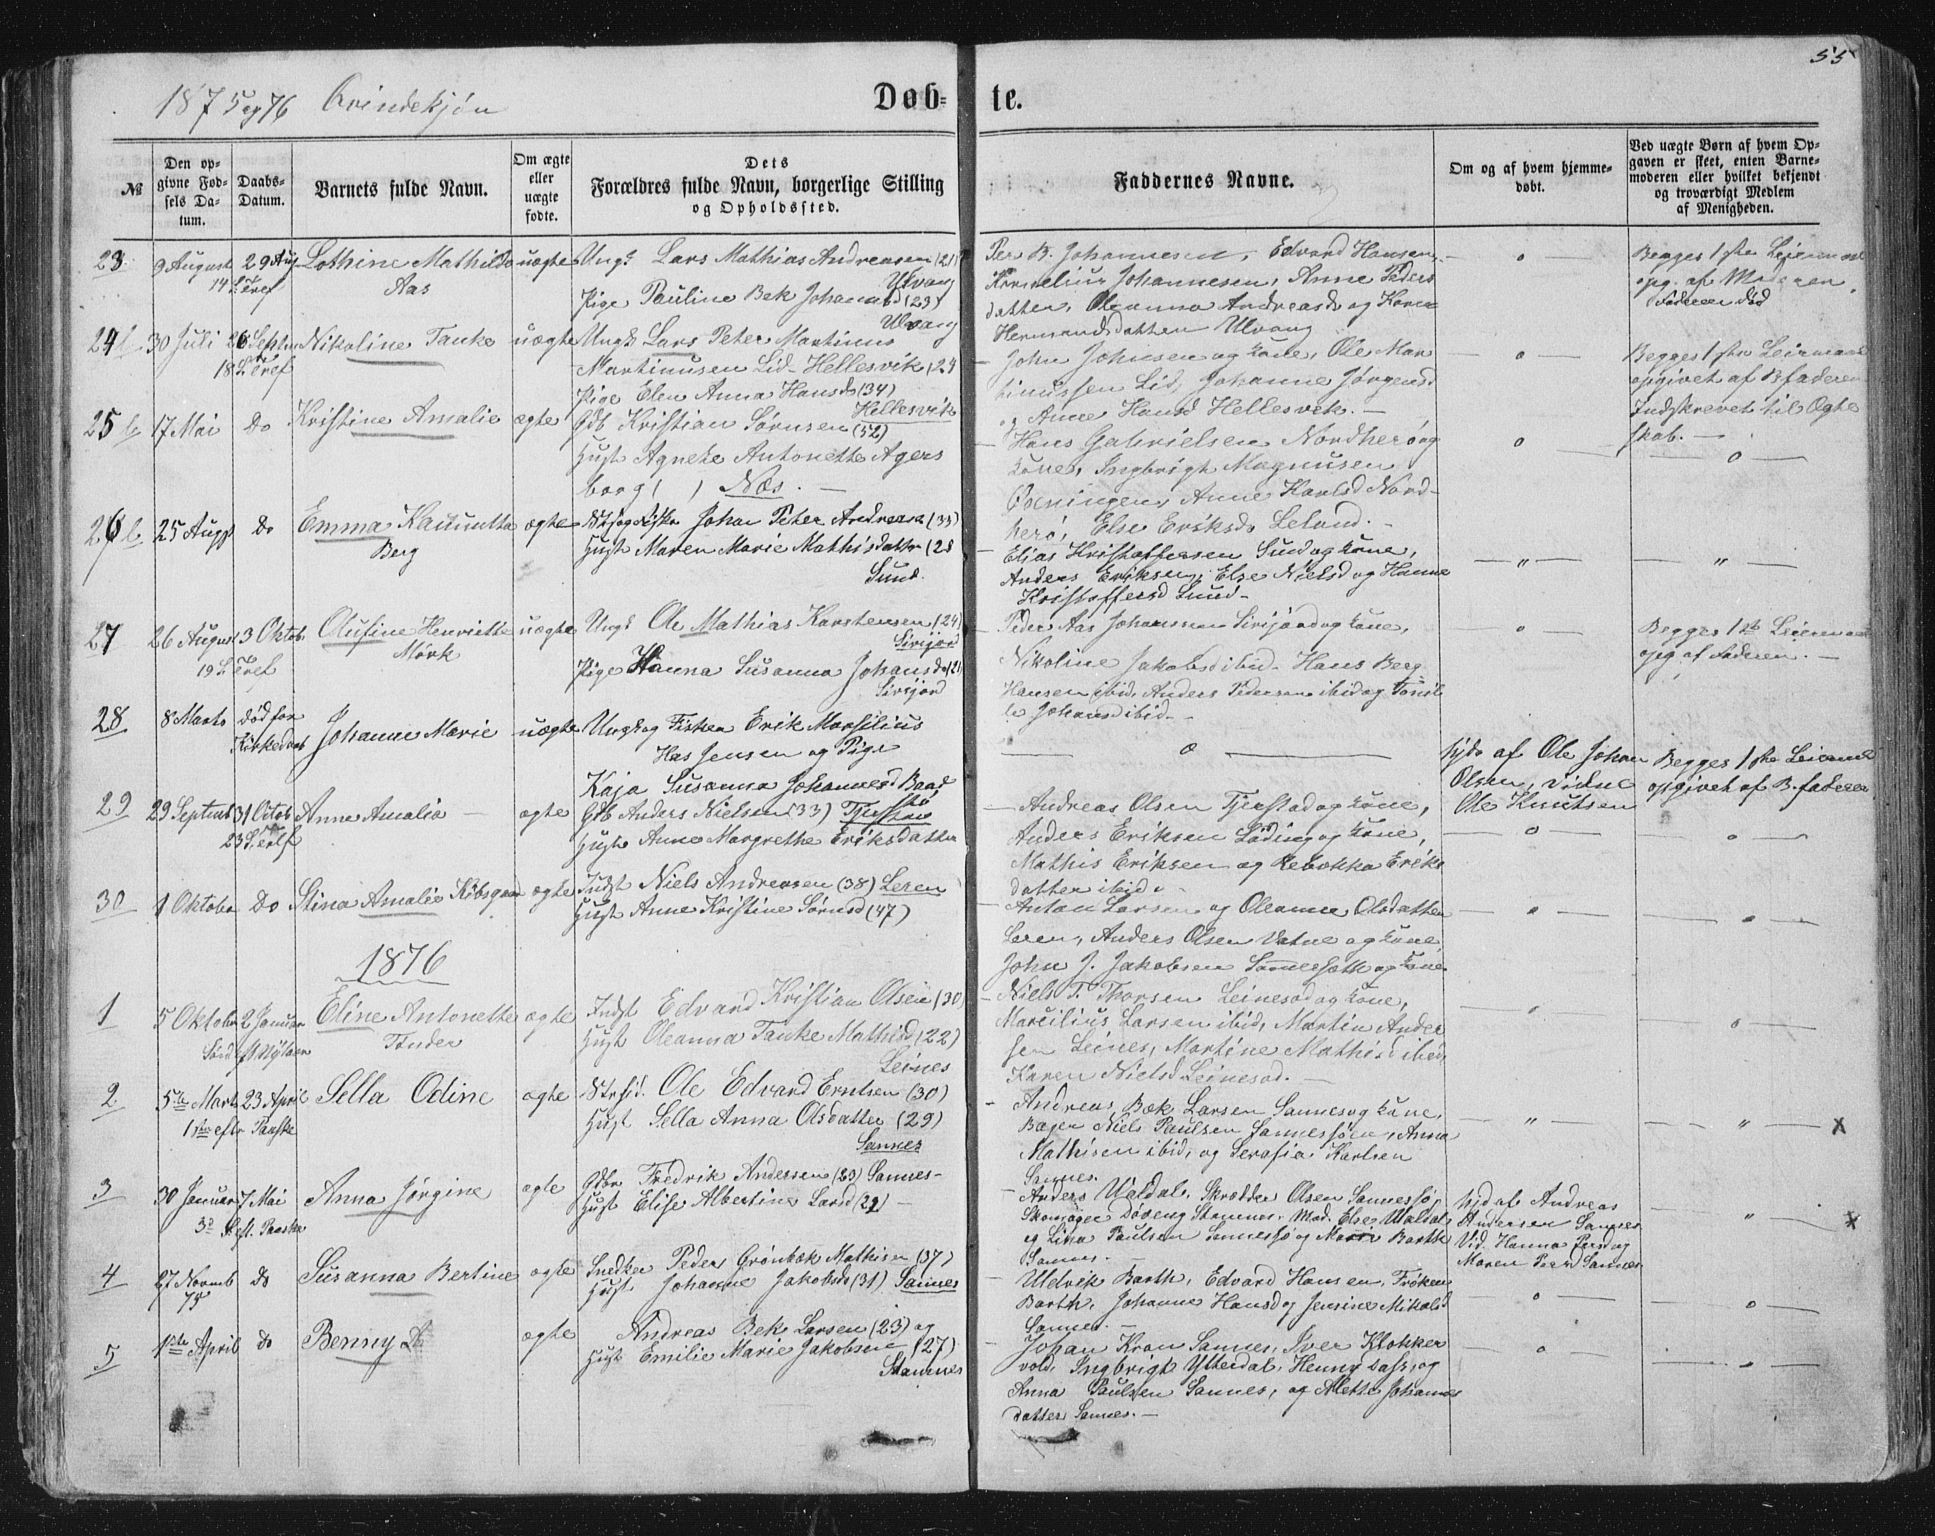 55
1875 og 76 Qvindekjøn
Døb- te.
№
Den op-
givne Fød-
sels Da-
tum.
Daabs-
Datum.
Barnets fulde Navn.
Om ægte
eller
uægte
fødte.
Dets
Forældres fulde Navn, borgerlige Stilling
og Opholdssted.
Faddernes Navne.
Om og af hvem hjemme-
døbt.
Ved uægte Børn af hvem Op-
gaven er skeet, enten Barne-
moderen eller hvilket bekjendt
og troværdigt Medlem
af Menigheden.
23
9 August
29 Aug
14 S. Tref
Lothine Mathilde
Aas
uægte
Ungk Lars Mathias Andreasen (21)
Ulvang
Pige Pauline Bek Johannsd (23)
Ulvang
Per B. Johannesen, Edvard Hansen,
Kornelius Johannesen, Anne Peders
datter, Oleanna Andreasd og Karen
Hermandsdatter Ulvang
o
Begges 1ste Leierm
opg. af Moderen.
Faderen død
24
30 Juli
26 Septm
18 S. Tref
Nikoline Tanke
uægte
Ungk Lars Peter Martinus
Martinusen Lid - Hellesvik (24
Pige Elen Anna Hansd (34)
Hellesvik
John Johnsen og Kone, Ole Mar
tinussen Lid, Johanne Jørgensd
og Anne Hansd Hellesvik. -
o
Begges 1ste Leirmaal
opgivet af B.faderen
Indskrevet til Ægte
skab. -
25
17 Mai
Do
Kristine Amalie
ægte
Gdb Kristian Sørnsen (52)
Hust Agnete Antonette Agers
borg ( ) Næs. -
Hans Gabrielsen Nordherø og
Kone, Ingbrigt Magnusen
Anne Karlsd Nord-
herø, Else Eriksd Leland. -
o
o
26
25 Aug
Do
Emma
Berg
ægte
Johan Peter Andreas (33)
Hust Maren Marie Mathisdattr (28
Sund.
Elias Kristoffersen Sund og Kone,
Anders Eriksen, Else Nielsd og Hanne
Kristoffersd Sund -
"
"
27
26 August
3 Oktob
19 S. Tref
Olufine Henriette
Mørk
uægte
Ungk Ole Mathias Karstensen (24)
Sivijord
Pige Hanna Susanna Johansd (21
Sivijord
Peder Aas Johannsen Sivijord og Kone,
Nikoline Jakobsd ibid. Hans Berg
Hansen ibid, Anders Pedersen ibid og
Johansd ibid. -
o
Begges 1ste Leierm
opg. af Faderen. -
28
8 Marts
død før
Kirkedaab
Johanne Marie
uægte
Ungk og Fisker Erik Marsilius
Has Jensen og Pige
Kaja Susanna Johannesd
o
hjdø af Ole Johan
Olsen, vidne
Ole Knutsen
Begges 1ste Leierm
opgivet af B.faderen
29
29 Septmb
31 Octob
23 S. Tref
Anne Amalia -
ægte
Gdb Anders Nielsen (33) Tjerstad
Hust Anne Margrethe Eriksdatter
Andreas Olsen Tjerstad og Kone,
Anders Eriksen Løding og Kone,
Mathis Eriksen og Rebokka Eriks
datter ibid. -
o
o
30
1 Oktober
Do
Stina Amalie Kibsgaar
ægte
Indst Niels Andreasen (38) Leren
Hust Anne Kristine Sørnsd (47)
Anton Larsen og Oleanne Olsdatter
Leren, Anders Olsen Vatne og Kone,
John J. Jakobsen og Kone
o
o
1876
1
5 Oktober
2 Januar
Sønd eft. Nytaar
Eline Antonette
Tønder
ægte
Indst Edvard Kristian Olsen (30
Hust Oleanna Tanke Mathisd (22)
Leines
Niels T. Thorsen Leinesod og Kone,
Marcilius Larsen ibid, Martin Ander
sen Leines, Martine Mathisd ibid,
Karen Nielsd Leinesod. -
o
o
2
5te Mart
23 April
1ste eftr Paaske
Sella Odine
ægte
Strsid. Ole Edvard Erntsen (30)
Hust Sella Anna Olsdatter (29)
Sannes
Andreas Bæk Larsen Sannes og Kone,
Bager Niels Paulsen Sannessøen, Anna
Mathisen ibid, og Serafia Karlsen
Sannes.
"
"
x
3
30 Januar
7 Mai
3d S. eft. Paaske
Anna Jørgine
ægte
Gdbr Fredrik Andersen (23) Sannes -
Hust Elise Albertine Larsd (22) -
Anders Waldal, Skrædder Olsen Sannessø,
Skomager Døseng Stamnes. Mad. Else Waldal
og Lina Paulsen Sannessø og Marie Barth
Sannes. -
hjd af Andreas
Andersen Sannes
Vid. Hanna Persd og
Maren Peersd Sannes
"
x
4
27 Novmb
75
Do
Susanna Bertine
ægte
Snedker Peder Grønbæk Mathisen (37)
Hust Johanne Jakobsd (31) Sannes
Uldrik Barth, Edvard Hansen, Frøken
Barth, Johanne Hansd og Jensine Mikalsd
Sannes. -
o
o
5
1ste April
Do
Benny
ægte
Andreas Bek Larsen (23) og
Hust Emilie Marie Jakobsen (27)
Stamnes
Johan Kron Sannes, Iver Klokker
vold, Ingbrigt Ytterdal, Henny Dass, og
Anna Paulsen Sannes, og Alette Johannes
datter Sannes. -
o
o